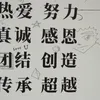 热爱 努力
真诚 感恩
团结 创造
传承 超越